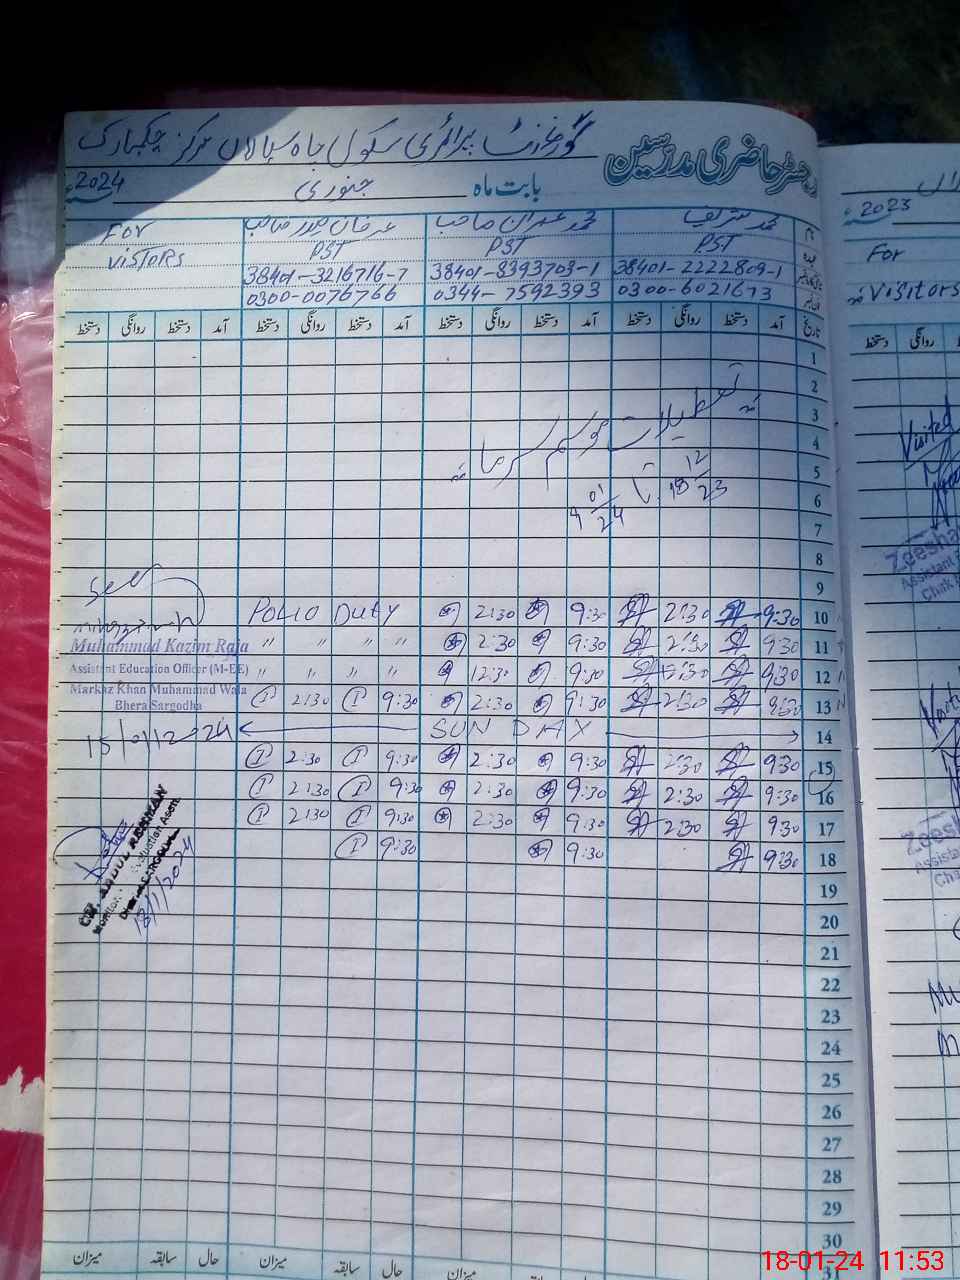 گورنمنٹ پرائمری سکول چاہ سیالاں مرکز چکمبارک
رجسٹر حاضری مدرسین
بابت ماہ جنوری 2024ء
محمد شریف
محمد عمران صاحب
عرفان صاحب
For
PST
PST
PST
VISTORS
38401-2222809-1
38401-8393703-1
38401-3216716-7
0300-6021673
0344-7592393
0300-0076766
تاریخ آمد دستخط روانگی دستخط آمد دستخط روانگی دستخط آمد دستخط روانگی دستخط آمد دستخط روانگی دستخط
1
2
3
تعطیلات موسم سرما
4
5
18 12/23 تا 9 01/24
6
7
8
9
Seen
10 9:30 2:30 9:30 2:30 Polio Duty
11 9:30 2:30 9:30 2:30 " " " "
12 9:30 9:30 12:30 " " " "
13 9:30 2:30 9:30 2:30 9:30 2:30
14 SUN DAY
15 9:30 2:30 9:30 2:30 9:30 2:30
16 9:30 2:30 9:30 2:30 9:30 2:30
17 9:30 2:30 9:30 2:30 9:30 2:30
18 9:30 9:30 9:30
Muhammad Kazim Raja
Assistant Education Officer (M-EE)
Markaz Khan Muhammad Wala
Bhera Sargodha
15/01/2024
18/1/2024
19
20
21
22
23
24
25
26
27
28
29
30
31
میزان سابقہ حال میزان سابقہ حال میزان
2023ء
For
Visitors
دستخط روانگی
Visited
Zeesha
Assistant
Chak
Zeesha
Assista
18-01-24 11:53